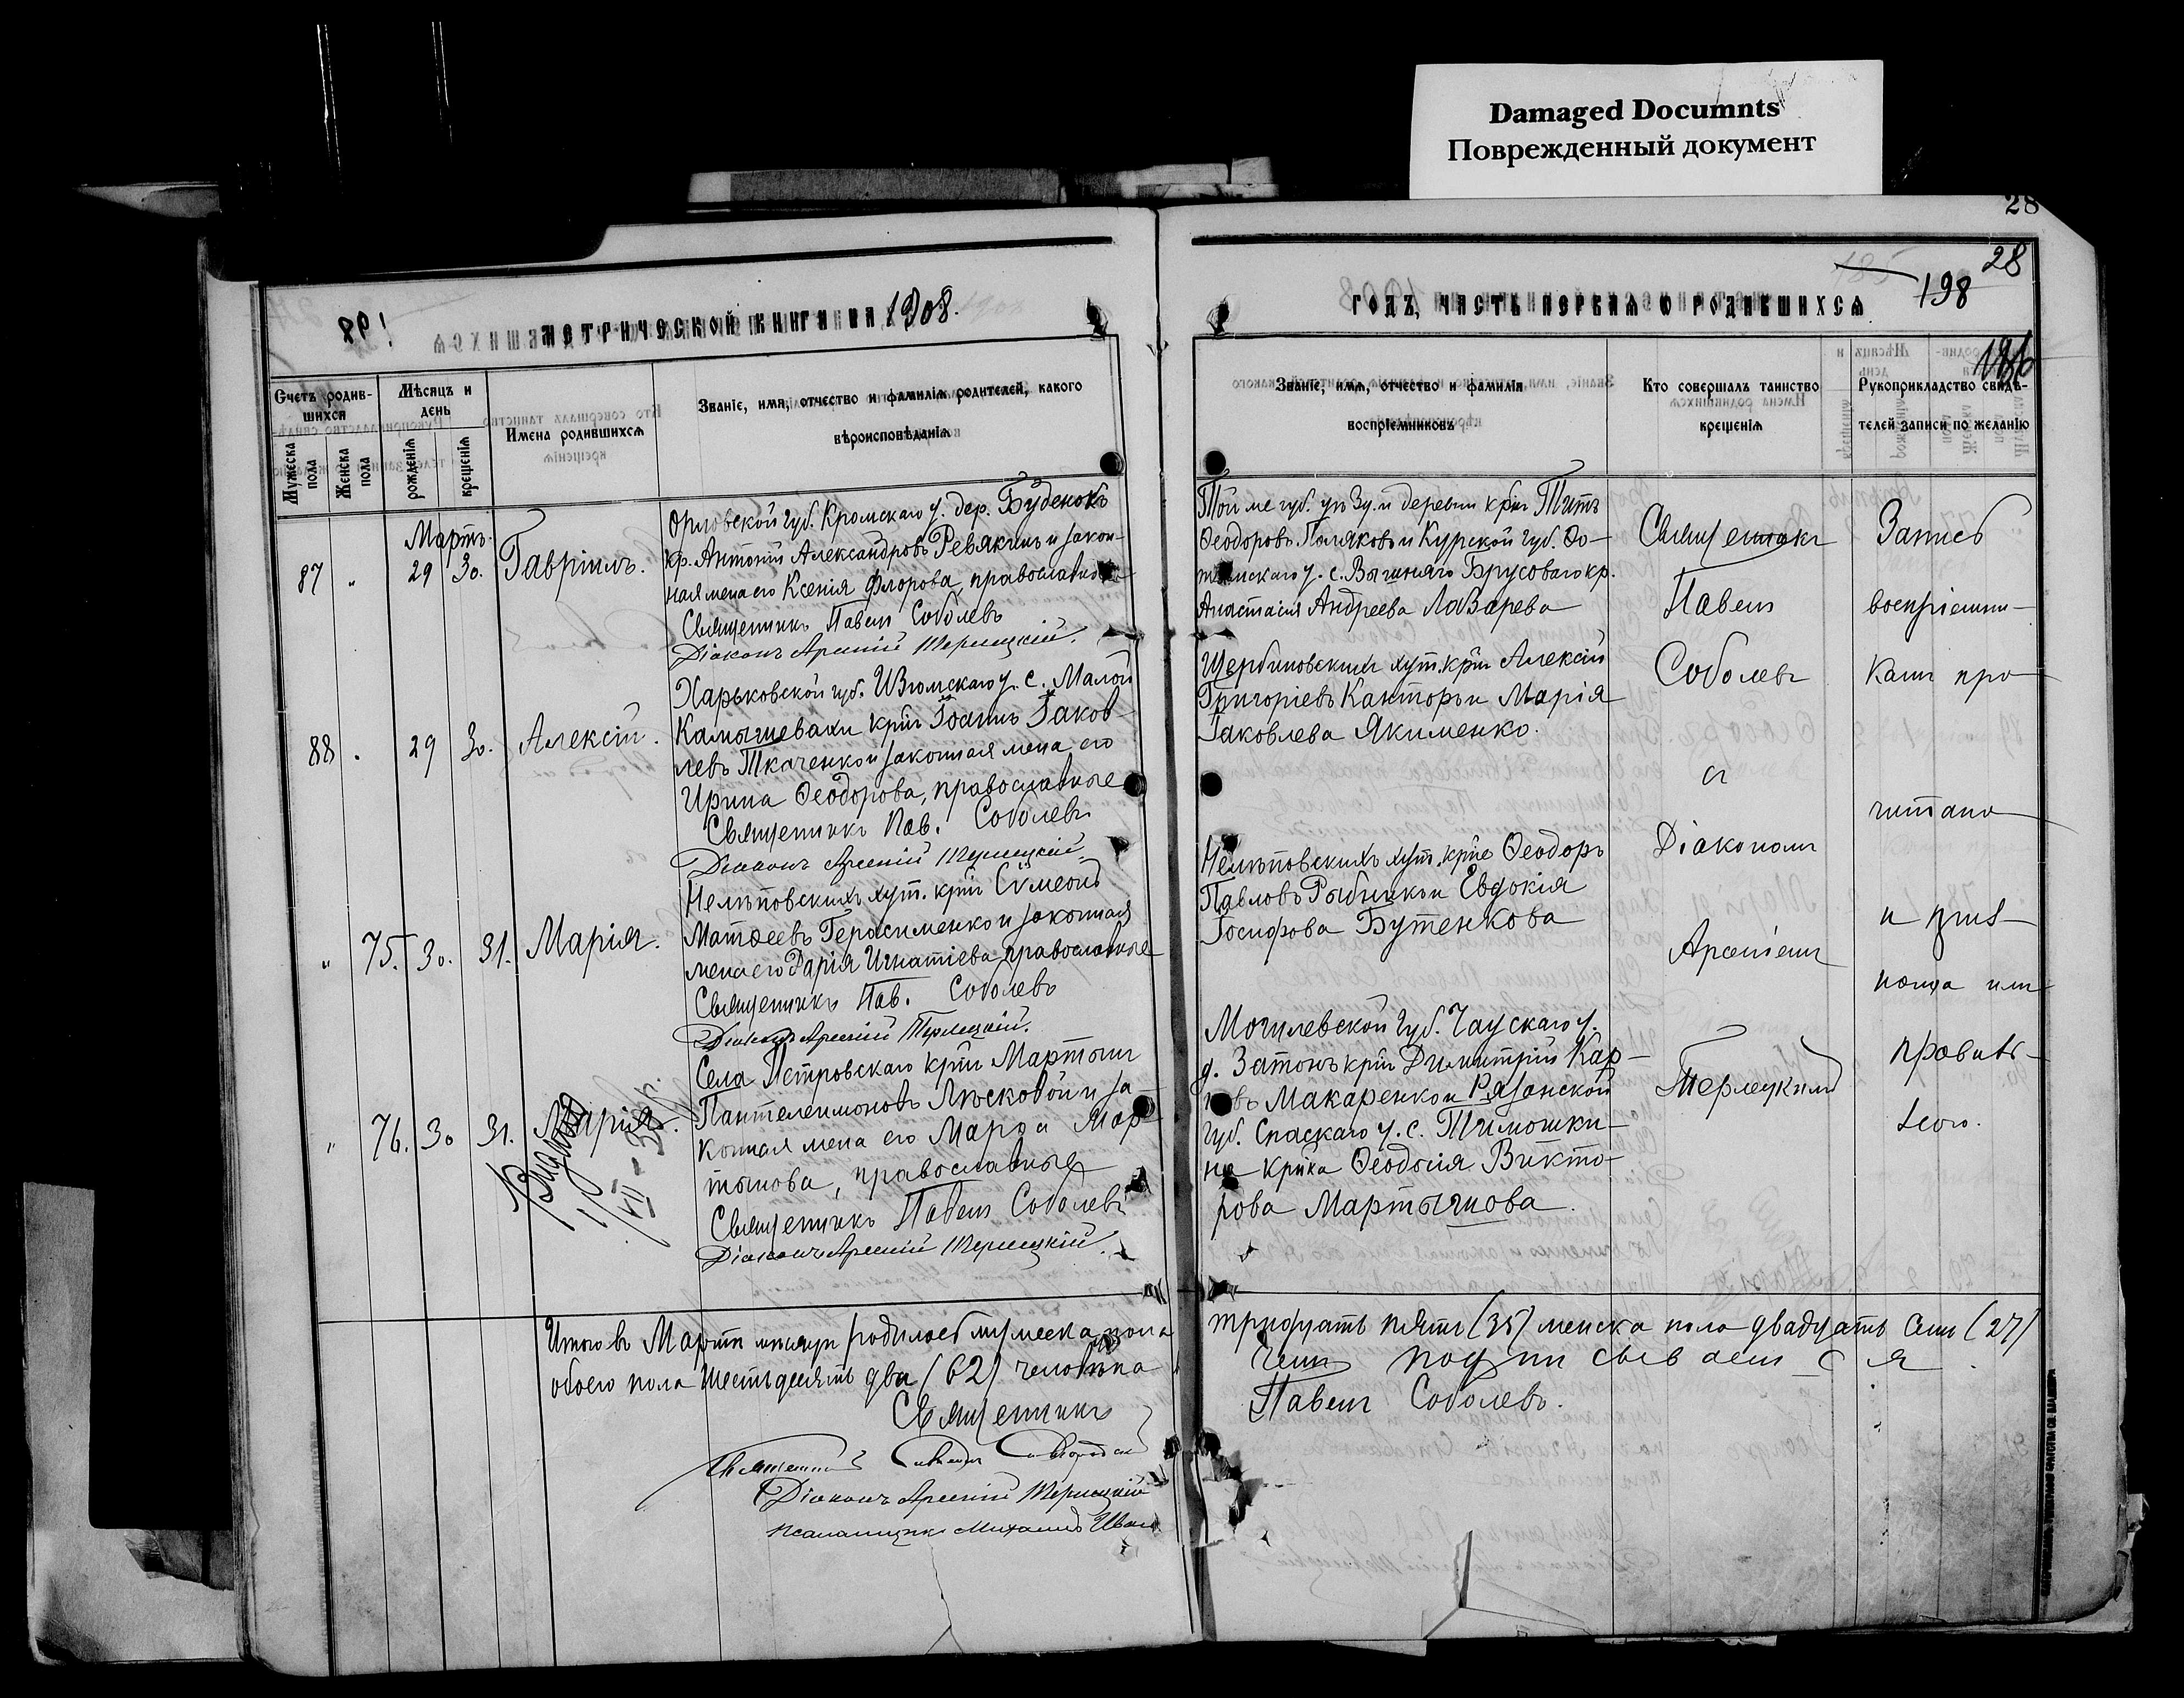 Damaged Documnts
Поврежденный документ
28
28
198
198
МЕТРИЧЕСКОЙ КНИГИ НА 1908.
ГОДЪ, ЧАСТЬ ПЕРВАЯ О РОДИВШИХСЯ
Счетъ родив-
шихся
Мужеска пола
Женска пола
Мѣсяцъ и день
рожденія
крещенія
Имена родившихся
Званіе, имя, отчество и фамилія родителей, какого
вѣроисповѣданія
Званіе, имя, отчество и фамилія
воспріемниковъ
Кто совершалъ таинство
крещенія
Рукоприкладство свидѣ-
телей записи по желанію
Мартъ.
87 " 29 30. Гавріилъ.
Орловской губ. Кромскаго у. дер. Буденокъ
кр. Антоній Александровъ Ревякинъ и закон-
ная жена его Ксенія Флорова, православные
Священникъ Павелъ Соболевъ
Діаконъ Арсеній Терлецкій.
Той же губ. уѣзу. и деревни кр-нъ Титъ
Ѳеодоровъ Поляковъ и Курской губ.
у. с. Вышняго Брусоваго кр.
Анастасія Андреева Лазарева
88 . 29 30. Алексій.
Харьковской губ. Изюмскаго у. с. Малой
Камышевахи кр-нъ Іоаннъ Іаков-
левъ Ткаченко и законная жена его
Ирина Ѳеодорова, православные
Священникъ Пав. Соболевъ
Діаконъ Арсеній Терлецкій
Щербиновскихъ хут. кр-нъ Алексій
Григоріевъ Канторъ и Марія
Іаковлева Якименко.
" 75. 30. 31. Марія.
Нелѣповскихъ хут. кр-нъ Симеонъ
Матѳеевъ Герасименко и законная
жена его Дарія Игнатіева, православные
Священникъ Пав. Соболевъ
Діаконъ Арсеній Терлецкій.
Нелѣповскихъ хут. кр-не Ѳеодоръ
Павловъ Рыбникъ и Евдокія
Іосифова Бутенкова
" 76. 30 31. Марія.
Села Петровскаго кр-нъ Мартинъ
Пантелеимоновъ Лѣсковой и за-
конная жена его Марѳа Мар-
тынова, православные
Священникъ Павелъ Соболевъ
Діаконъ Арсеній Терлецкій.
Могилевской губ. Чаускаго у.
д. Затонъ кр-нъ Димитрій Кар-
повъ Макаренко и Рязанской
губ. Спаскаго у. с. Тимошки-
на кр-нка Ѳеодосія Викто-
рова Мартынова.
Священникъ
Павелъ
Соболевъ
съ
Діакономъ
Арсеніемъ
Терлецкимъ
Запись
воспріемни-
камъ про-
читана
Итого въ Мартѣ мѣсяцѣ родилось мужеска пола
тридцать пять (35) женска пола двадцать семь (27)
обоего пола шестьдесятъ два (62) человѣка
чемъ подписываемся.
Священникъ
Павелъ Соболевъ.
Діаконъ Арсеній Терлецкій
Псаломщикъ Михаилъ